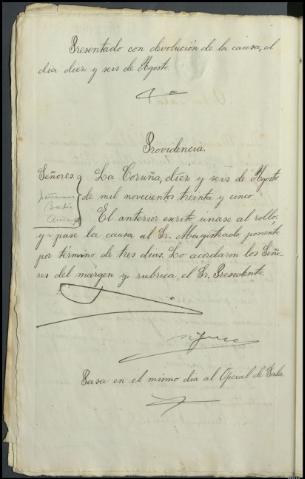 Presentado con devolución de la causa, el
día diez y seis de Agosto.
Providencia.
Señores
La Coruña, diez y seis de Agosto
de mil novecientos treinta y cinco.
El anterior escrito únase al rollo,
y pase la causa al Sr. Magistrado ponente
por término de tres días. Lo acordaron los Seño-
res del margen y rubrica, el Sr. Presidente.
Pasa en el mismo día al Oficial de Sala.